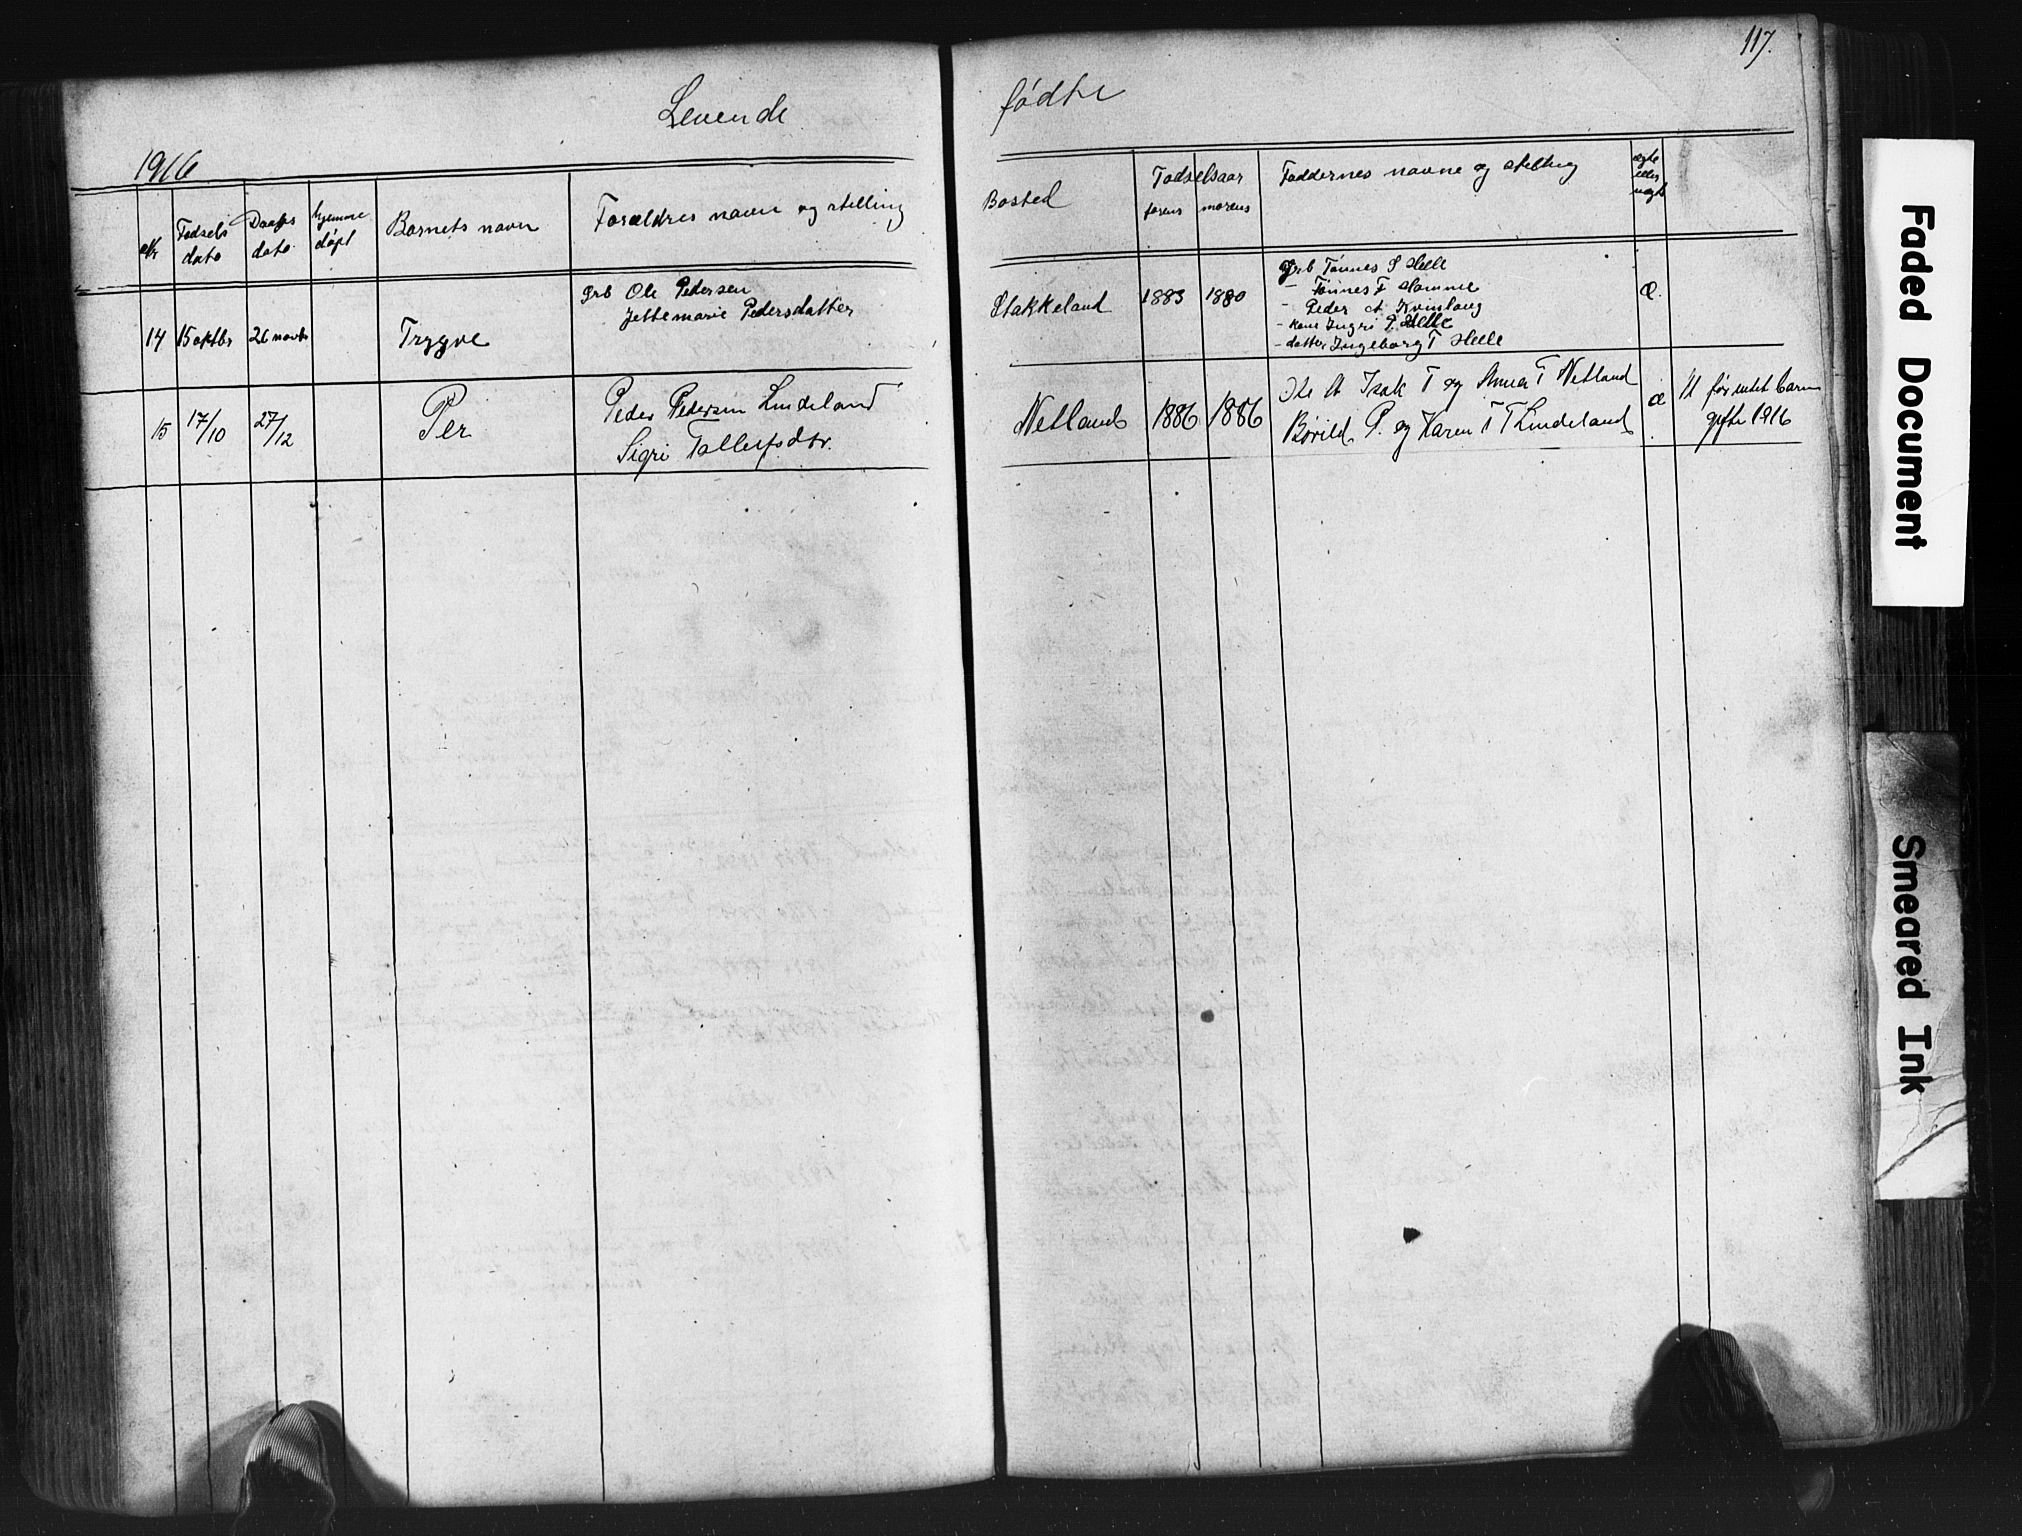 117.
Levende fødte
1916
Nr Fødsels dato Daabs dato hjemme døpt Barnets navn Forældres navne og stilling Bosted Fødselsaar farens morens Faddernes navne og stilling ægte eller uægte
14 15 oktbr 26 novbr Trygve
Grb Ole Pedersen
Jettemarie Pedersdatter
Stakkeland 1883 1880
Grb Tønnes S Helle
- Tønnes F Homme
- Peder A Kvinlaug
- kone Ingri P. Helle
- datter Ingeborg T Helle
Æ.
15 17/10 27/12 Per
Peder Pedersen Lindeland
Sigri Tollefsdtr.
Netland 1886 1886
Ole A Isak T og Anna T Netland
Børild P. og Karen T T Lindeland
æ
U før intet barn
gifte 1916
Faded Document
Smeared Ink